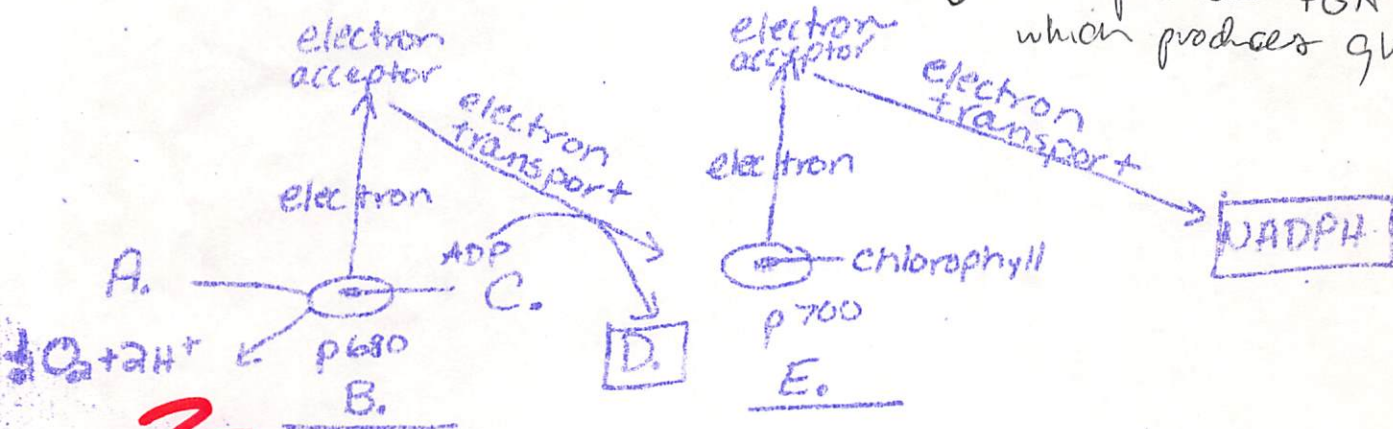 which produces
electron
acceptor
electron
transport
electron
A.
ADP
C.
½O₂+2H⁺
p680
B.
D.
electron
acceptor
electron
transport
electron
chlorophyll
p700
E.
NADPH